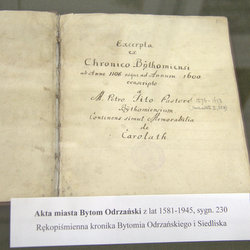 Excerpta
ex
Chronico Bÿthomiensi
ab Anno 1106 usque ad Annum 1600
conscripto
a
M. Petro Tito Pastore
Bÿthomiensium
Continens simul Memorabilia
de
Carolath
Akta miasta Bytom Odrzański z lat 1581-1945, sygn. 230
Rękopiśmienna kronika Bytomia Odrzańskiego i Siedliska